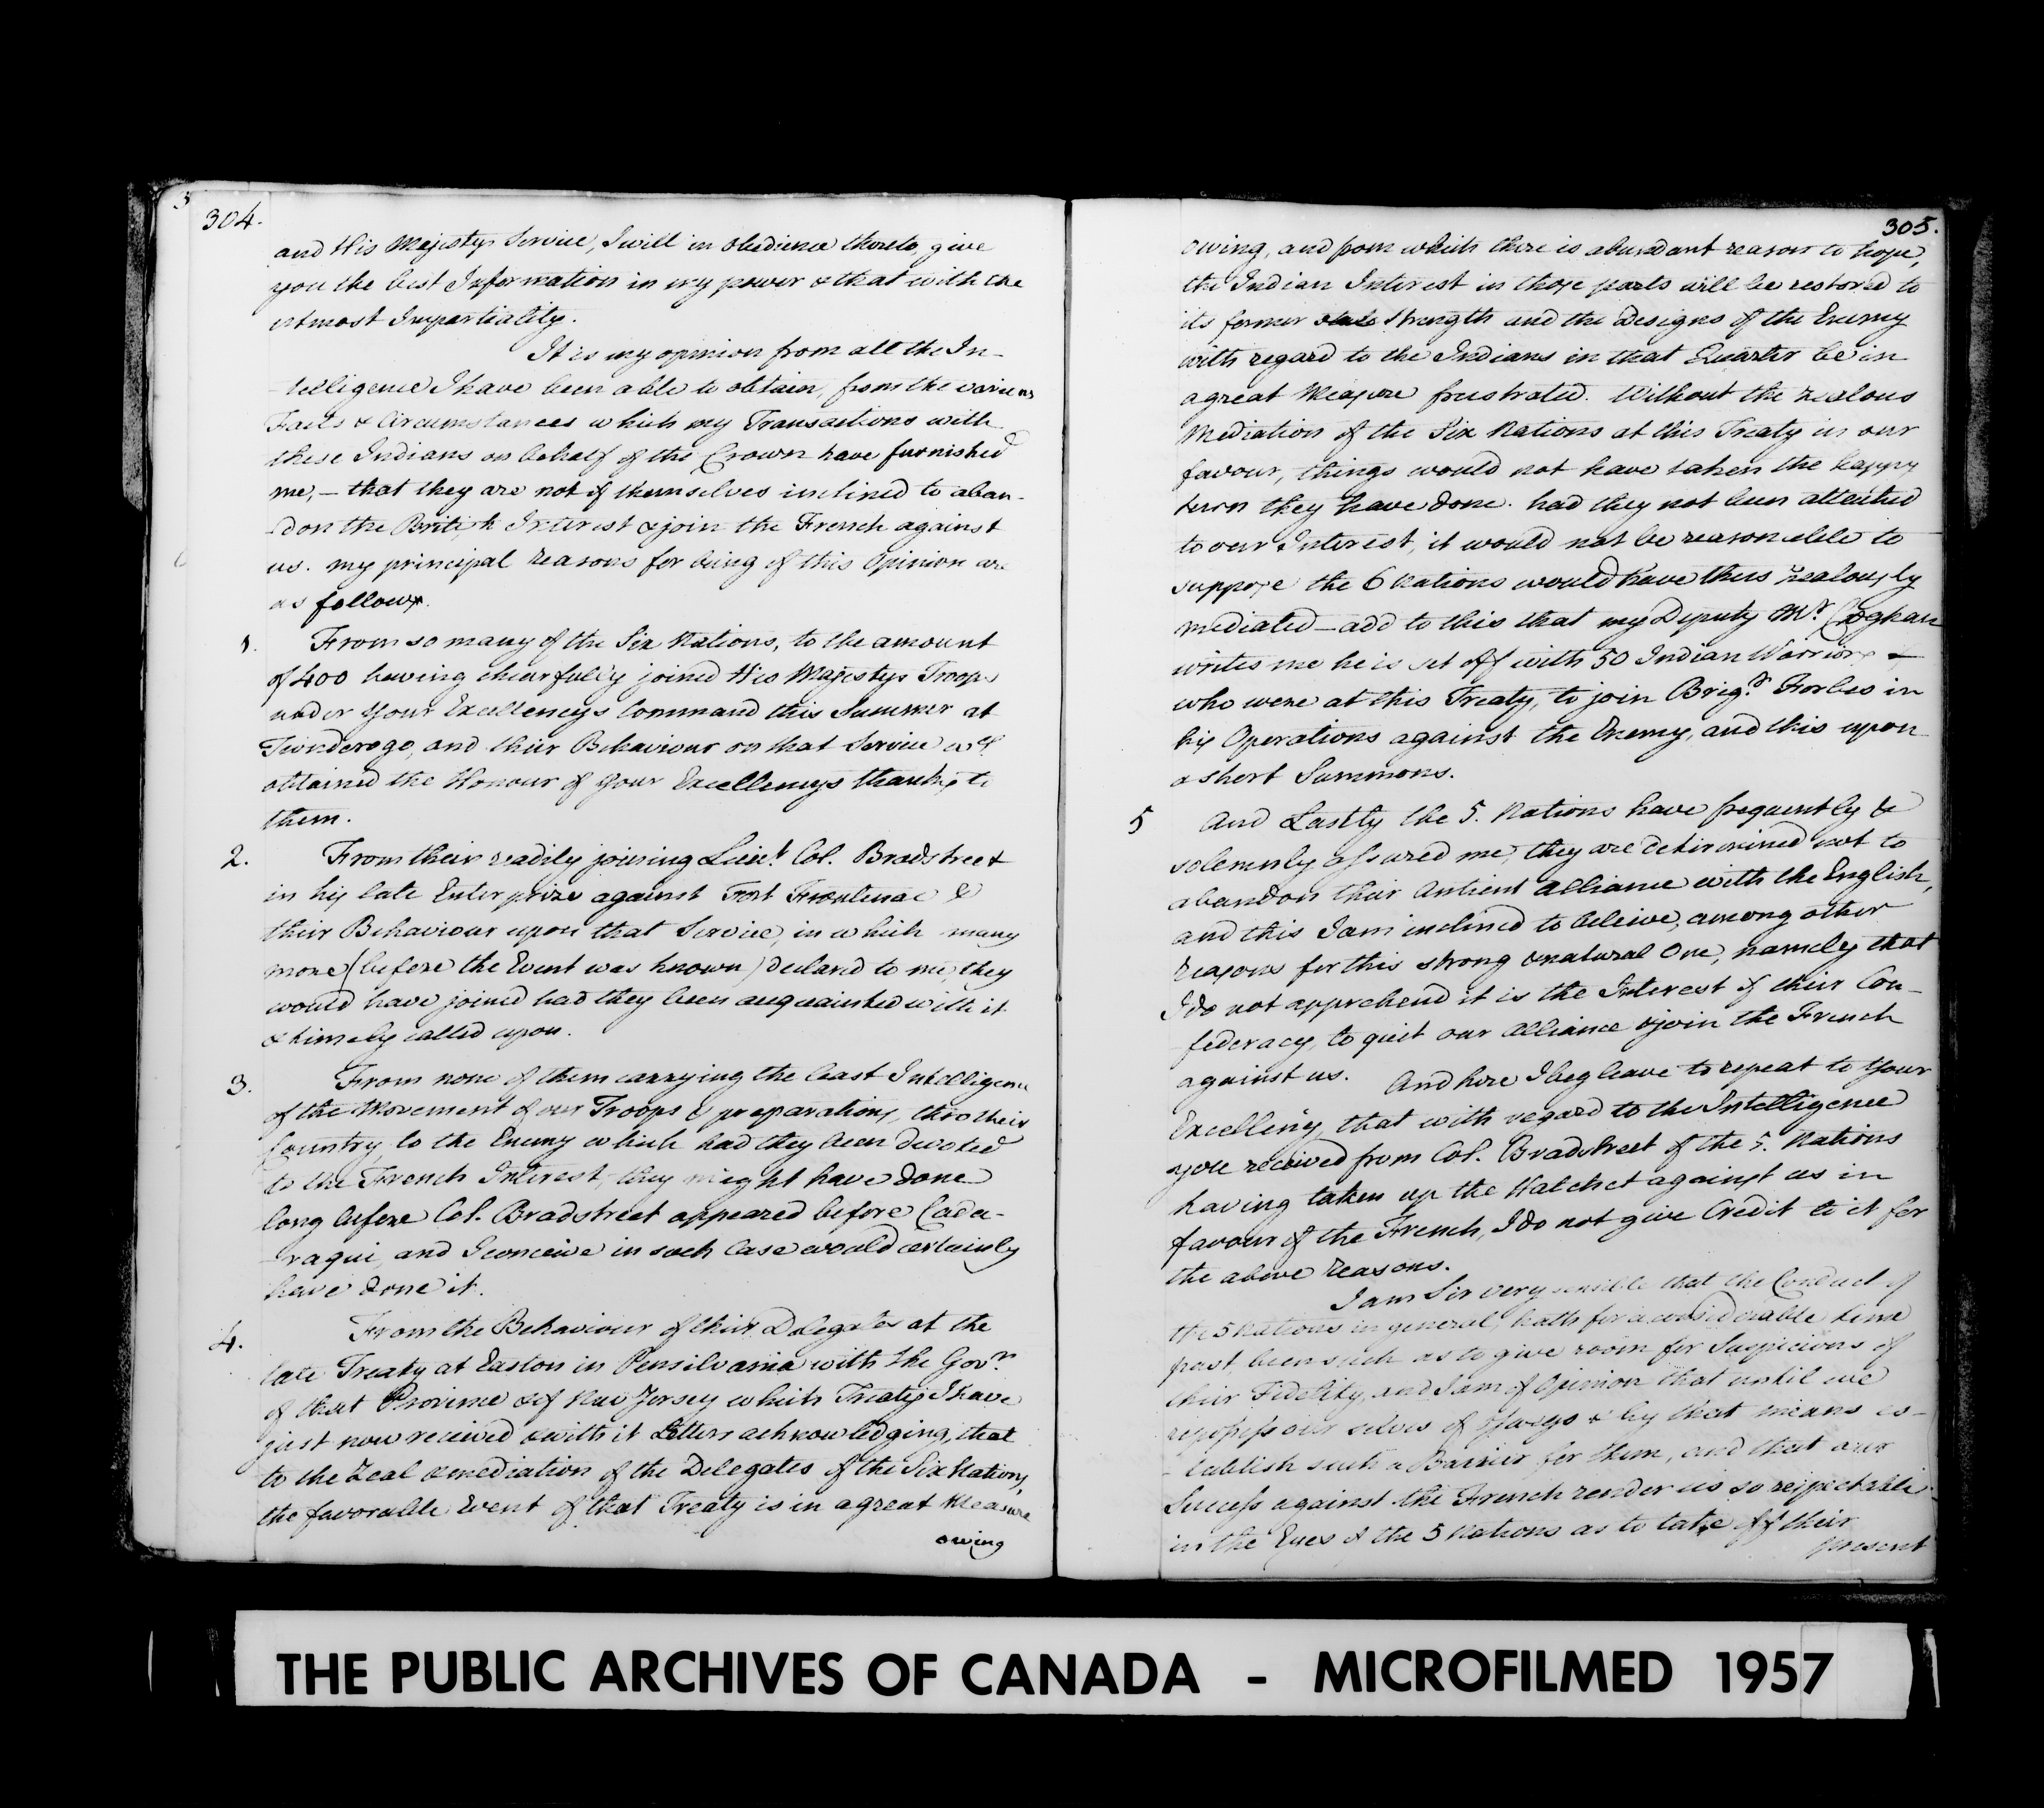 304.
and His Majestys Service, I will in obedience thereto, give
you the best Information in my power & that with the
utmost Impartiality.
It is my opinion from all the In-
-telligence I have been able to obtain, from the various
Facts & Circumstances which my Transactions with
these Indians on behalf of the Crown have furnished
me, - that they are not of themselves inclined to aban-
-don the British Interest & join the French against
us. my principal reasons for being of this Opinion are
as follows.
1. From so many of the Six Nations, to the amount
of 400 having chearfully joined His Majestys Troops
under Your Excellencys Command this Summer at
Tionderogo, and their Behaviour on that Service wch
obtained the Honour of Your Excellencys thanks to
them.
2. From their readily joining Lieut. Col. Bradstreet
in his late Enterprize against Fort Frontenac &
their Behaviour upon that Service, in which many
more (before the Event was known) declared to me, they
would have joined had they been acquainted with it
& timely called upon.
3. From none of them carrying the least Intelligence
of the Movement of our Troops & preparations, thro their
Country, to the Enemy which had they been devoted
to the French Interest, they might have done
long before Col. Bradstreet appeared before Cada-
-raqui, and I conceive in such Case would certainly
have done it.
4. From the Behaviour of their Delegates at the
late Treaty at Easton in Pensilvania with the Govrs
of that Province & of New Jersey which Treaty I have
just now received & with it Letters acknowledging, that
to the Zeal & mediation of the Delegates of the Six Nations,
the favorable Event of that Treaty is in a great Measure
owing
305.
owing, and from which there is abundant reason to hope,
the Indian Interest in those parts will be restored to
its former strength and the Designs of the Enemy
with regard to the Indians in that Quarter be in
a great Measure frustrated. Without the zealous
Mediation of the Six Nations at this Treaty in our
favour, things would not have taken the happy
turn they have done. had they not been attached
to our Interest, it would not be reasonable to
suppose the 6 Nations would have thus zealously
mediated - add to this that my Deputy Mr. Croghan
writes me he is set off with 50 Indian Warriors -
who were at this Treaty, to join Brigr. Forbes in
his Operations against the Enemy, and this upon
a short Summons.
5 And Lastly the 5. Nations have frequently &
solemnly assured me, they are determined not to
abandon their Antient Alliance with the English,
and this I am inclined to beleive, among other
reasons for this strong & natural One, namely that
I do not apprehend it is the Interest of their Con-
federacy, to quit our Alliance & join the French
against us. And here I beg leave to repeat to Your
Excellency, that with regard to the Intelligence
you received from Col. Bradstreet of the 5. Nations
having taken up the Hatchet against us in
favour of the French, I do not give Credit to it for
the above reasons.
I am Sir very sensible that the Conduct of
the 5 Nations in general, hath for a considerable time
past, been such as to give room for Suspicions of
their Fidelity, and I am of Opinion that until we
repossess our selves of Oswego & by that means es-
-tablish such a Barrier for them, and that our
Success against the French render us so respectable
in the Eyes of the 5 Nations as to take off their
present
THE PUBLIC ARCHIVES OF CANADA - MICROFILMED 1957